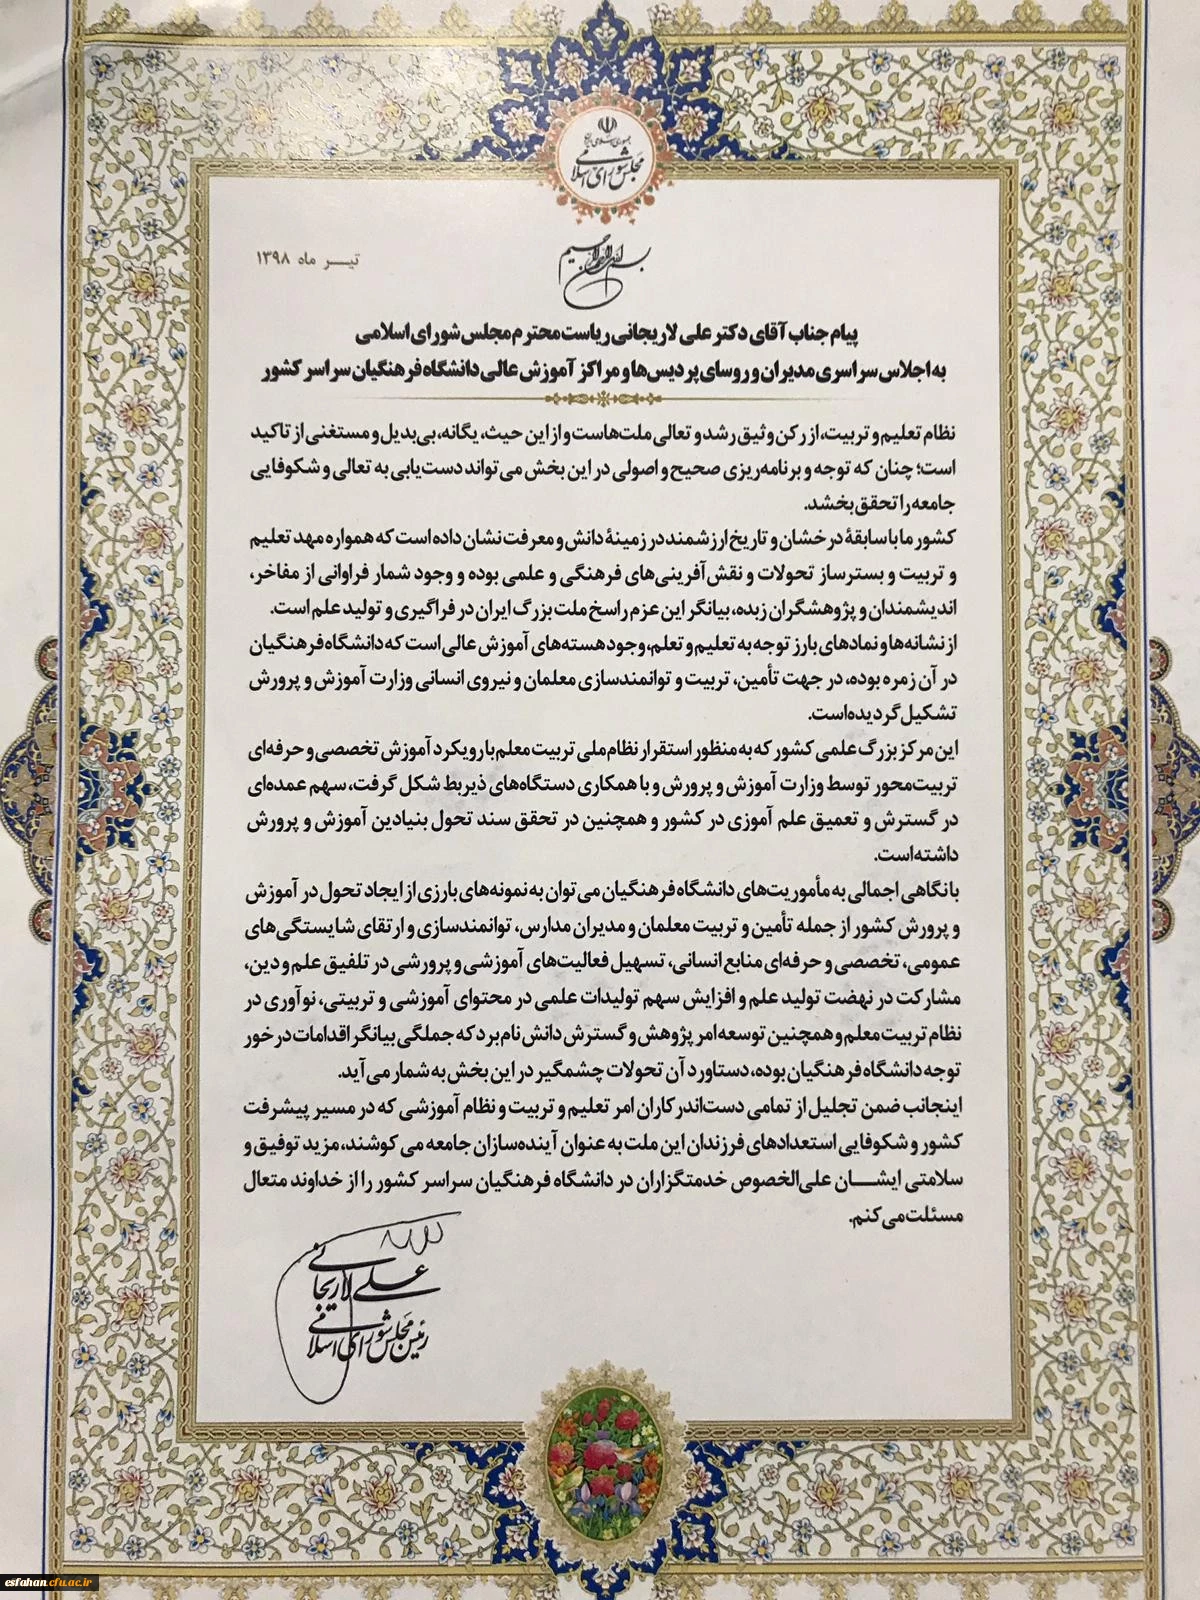 جمهوری اسلامی ایران
مجلس شورای اسلامی
بسم الله الرحمن الرحیم
تیـــر ماه ۱۳۹۸
پیام جناب آقای دکتر علی لاریجانی ریاست محترم مجلس شورای اسلامی
به اجلاس سراسری مدیران و روسای پردیس‌ها و مراکز آموزش عالی دانشگاه فرهنگیان سراسر کشور
نظام تعلیم و تربیت، از رکن وثیق رشد و تعالی ملت‌هاست و از این حیث، یگانه، بی‌بدیل و مستغنی از تاکید
است؛ چنان که توجه و برنامه‌ریزی صحیح و اصولی در این بخش می‌تواند دست‌یابی به تعالی و شکوفایی
جامعه را تحقق بخشد.
کشور ما با سابقهٔ درخشان و تاریخ ارزشمند در زمینهٔ دانش و معرفت نشان داده است که همواره مهد تعلیم
و تربیت و بسترساز تحولات و نقش‌آفرینی‌های فرهنگی و علمی بوده و وجود شمار فراوانی از مفاخر،
اندیشمندان و پژوهشگران زبده، بیانگر این عزم راسخ ملت بزرگ ایران در فراگیری و تولید علم است.
از نشانه‌ها و نمادهای بارز توجه به تعلیم و تعلم، وجود هسته‌های آموزش عالی است که دانشگاه فرهنگیان
در آن زمره بوده، در جهت تأمین، تربیت و توانمندسازی معلمان و نیروی انسانی وزارت آموزش و پرورش
تشکیل گردیده‌است.
این مرکز بزرگ علمی کشور که به منظور استقرار نظام ملی تربیت معلم با رویکرد آموزش تخصصی و حرفه‌ای
تربیت‌محور توسط وزارت آموزش و پرورش و با همکاری دستگاه‌های ذیربط شکل گرفت، سهم عمده‌ای
در گسترش و تعمیق علم آموزی در کشور و همچنین در تحقق سند تحول بنیادین آموزش و پرورش
داشته‌است.
با نگاهی اجمالی به مأموریت‌های دانشگاه فرهنگیان می توان به نمونه‌های بارزی از ایجاد تحول در آموزش
و پرورش کشور از جمله تأمین و تربیت معلمان و مدیران مدارس، توانمندسازی و ارتقای شایستگی‌های
عمومی، تخصصی و حرفه‌ای منابع انسانی، تسهیل فعالیت‌های آموزشی و پرورشی در تلفیق علم و دین،
مشارکت در نهضت تولید علم و افزایش سهم تولیدات علمی در محتوای آموزشی و تربیتی، نوآوری در
نظام تربیت معلم و همچنین توسعه امر پژوهش و گسترش دانش نام برد که جملگی بیانگر اقدامات درخور
توجه دانشگاه فرهنگیان بوده، دستاورد آن تحولات چشمگیر در این بخش به شمار می آید.
اینجانب ضمن تجلیل از تمامی دست‌اندرکاران امر تعلیم و تربیت و نظام آموزشی که در مسیر پیشرفت
کشور و شکوفایی استعدادهای فرزندان این ملت به عنوان آینده‌سازان جامعه می کوشند، مزید توفیق و
سلامتی ایشـــان علی‌الخصوص خدمتگزاران در دانشگاه فرهنگیان سراسر کشور را از خداوند متعال
مسئلت می کنم.
علی لاریجانی
رئیس مجلس شورای اسلامی
esfahan.cfu.ac.ir